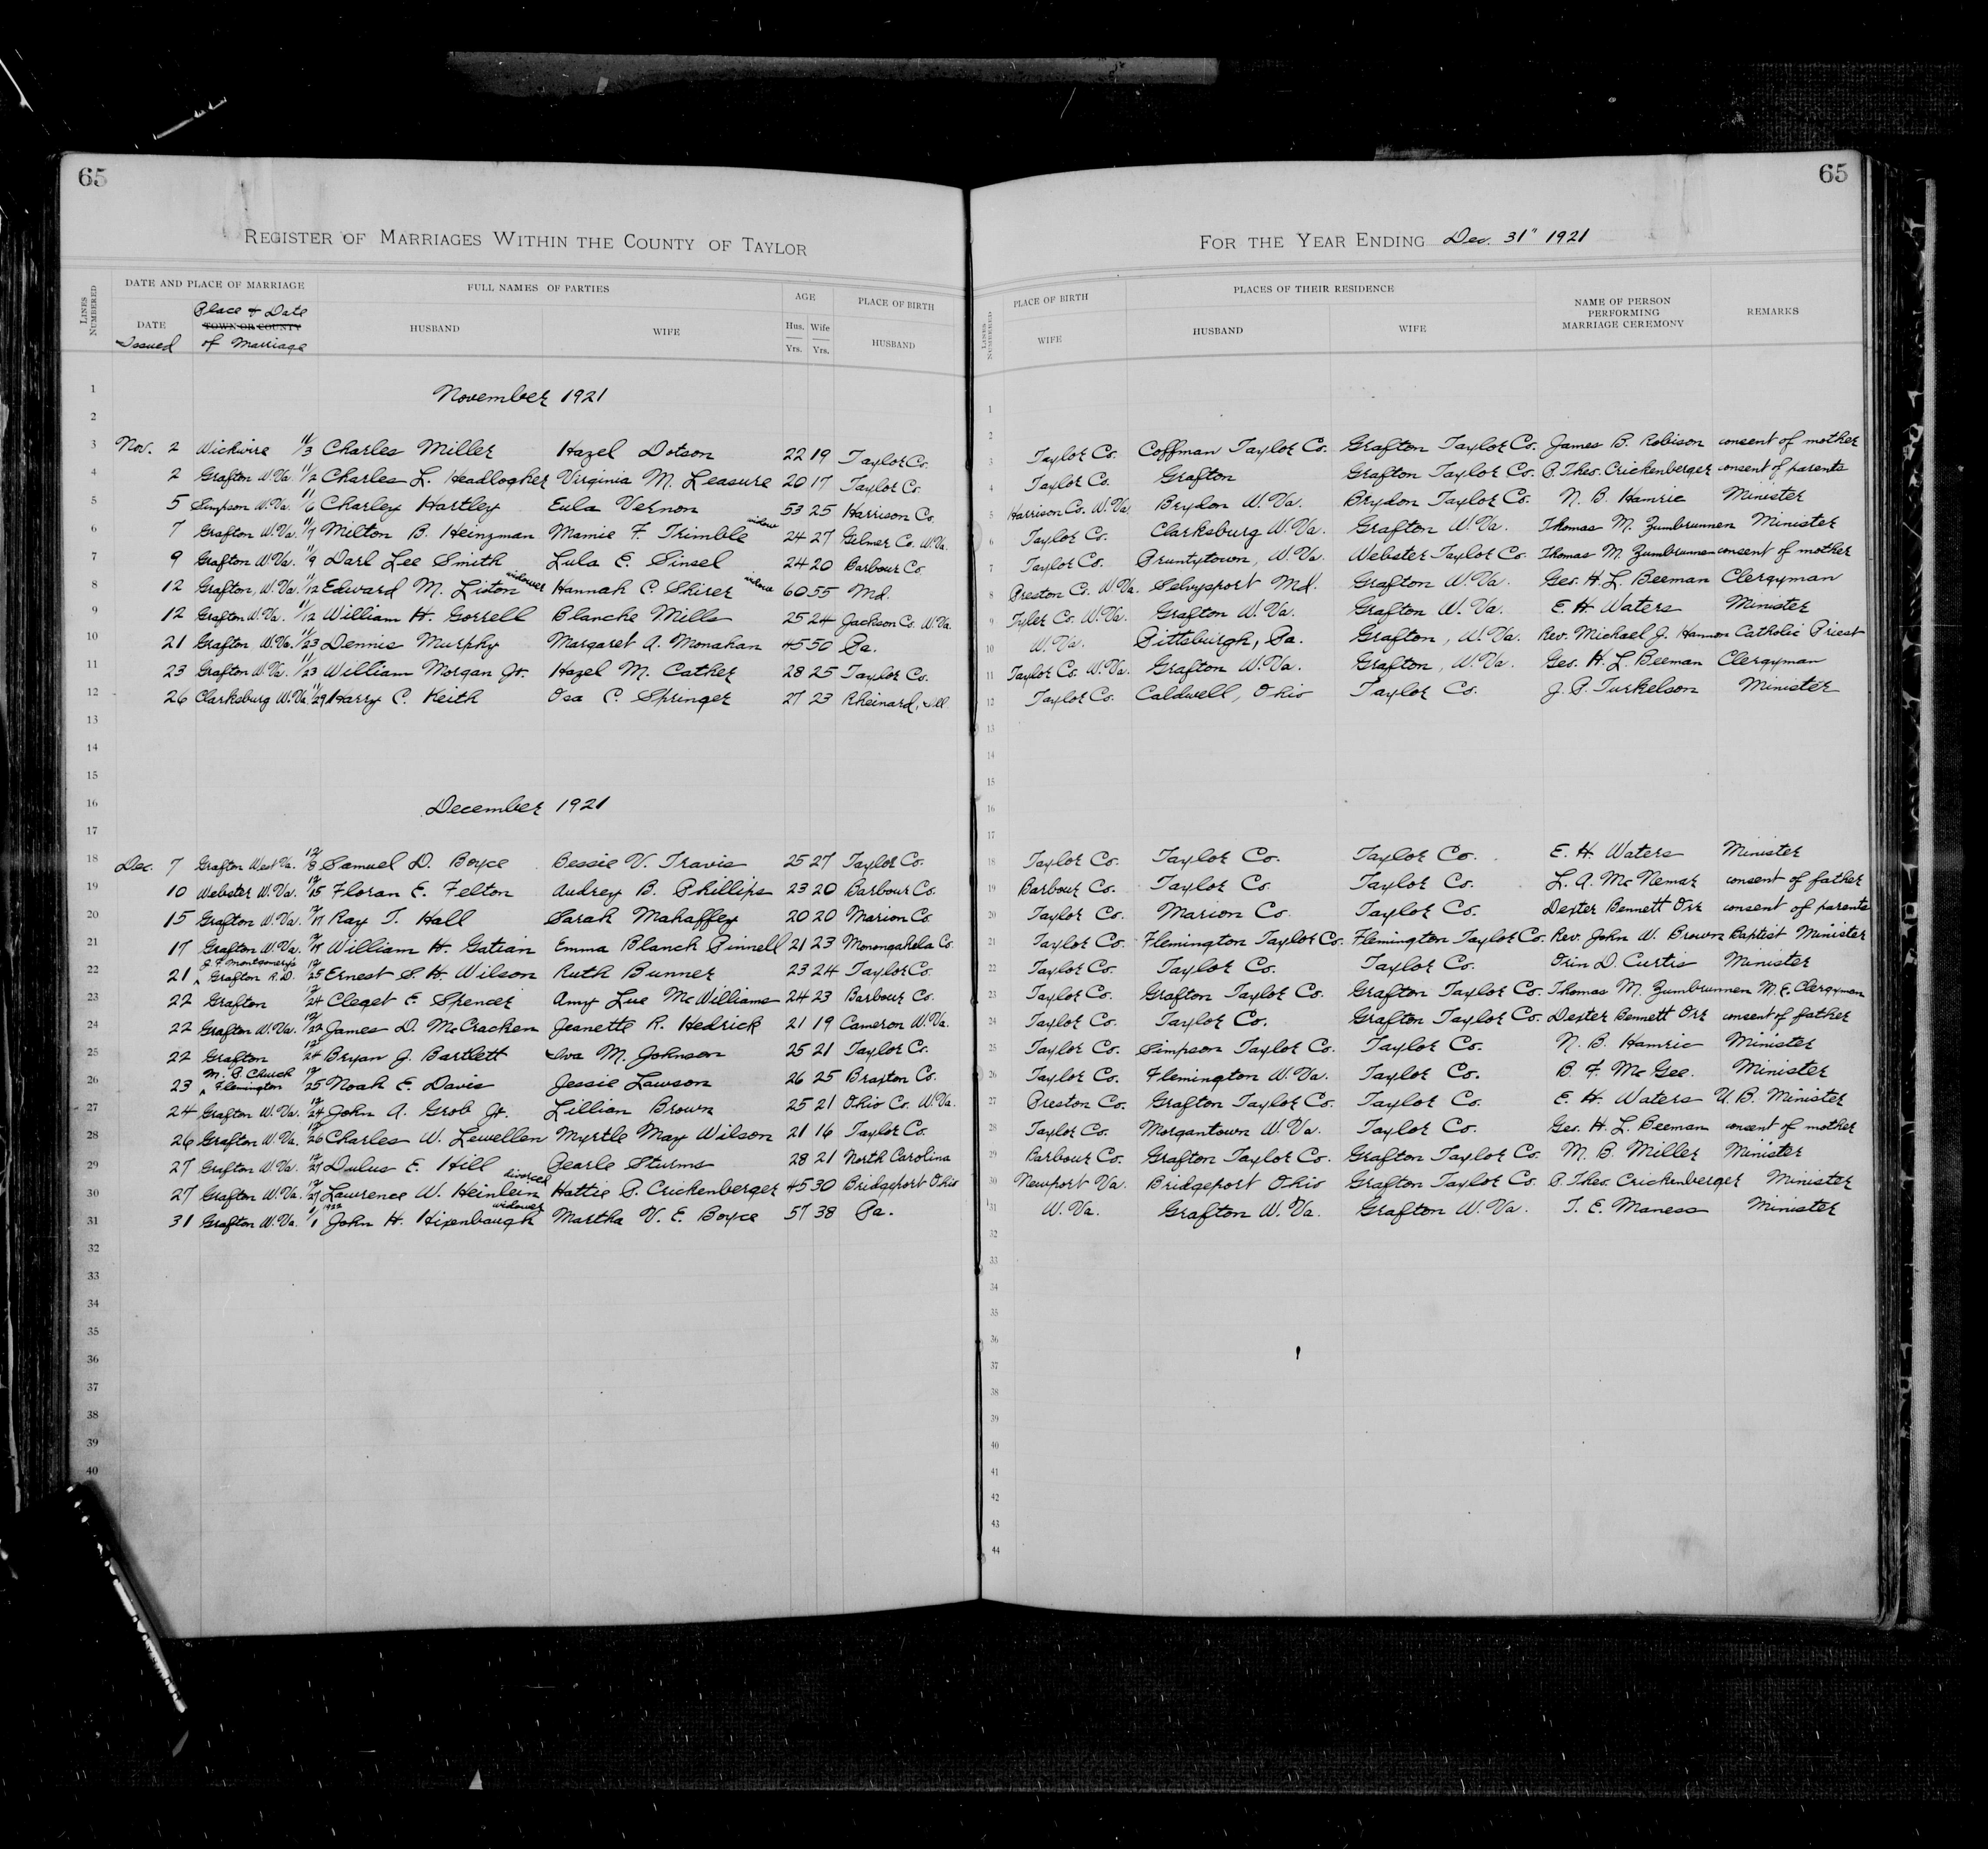 65
65
REGISTER OF MARRIAGES WITHIN THE COUNTY OF TAYLOR
FOR THE YEAR ENDING Dec. 31" 1921
LINES NUMBERED
DATE AND PLACE OF MARRIAGE
FULL NAMES OF PARTIES
AGE
PLACE OF BIRTH
DATE Issued
Place & Date
TOWN OR COUNTY
of Marriage
HUSBAND
WIFE
Hus. Wife
Yrs. Yrs.
HUSBAND
LINES NUMBERED
PLACE OF BIRTH
WIFE
PLACES OF THEIR RESIDENCE
HUSBAND
WIFE
NAME OF PERSON PERFORMING MARRIAGE CEREMONY
REMARKS
1 November 1921 1
2 2
3 Nov. 2 Wickwire 11/3 Charles Miller Hazel Dotson 22 19 Taylor Co. 3 Taylor Co. Coffman Taylor Co. Grafton Taylor Co. James B. Robison consent of mother
4 2 Grafton W.Va. 11/2 Charles L. Headlogher Virginia M. Leasure 20 17 Taylor Co. 4 Taylor Co. Grafton Grafton Taylor Co. P. Theo. Crickenberger consent of parents
5 5 Simpson W.Va. 11/6 Charley Hartley Eula Vernon 53 25 Harrison Co. 5 Harrison Co. W.Va. Brydon W.Va. Brydon Taylor Co. N. B. Hamric Minister
6 7 Grafton W.Va. 11/7 Milton B. Heinzman Mamie F. Trimble widow 24 27 Gilmer Co. W.Va. 6 Taylor Co. Clarksburg W.Va. Grafton W.Va. Thomas M. Zumbrunnen Minister
7 9 Grafton W.Va. 11/9 Darl Lee Smith Lula E. Sinsel 24 20 Barbour Co. 7 Taylor Co. Pruntytown, W.Va. Webster Taylor Co. Thomas M. Zumbrunnen consent of mother
8 12 Grafton, W.Va. 11/12 Edward M. Liston widower Hannah C. Shirer widow 60 55 Md. 8 Preston Co. W.Va. Selvysport Md. Grafton W.Va. Geo. H. L. Beeman Clergyman
9 12 Grafton W.Va. 11/12 William H. Gorrell Blanche Mills 25 24 Jackson Co. W.Va. 9 Tyler Co. W.Va. Grafton W.Va. Grafton W.Va. E. H. Waters Minister
10 21 Grafton W.Va. 11/23 Dennis Murphy Margaret A. Monahan 45 50 Pa. 10 W.Va. Pittsburgh, Pa. Grafton, W.Va. Rev. Michael J. Hannon Catholic Priest
11 23 Grafton W.Va. 11/23 William Morgan Jr. Hazel M. Cather 28 25 Taylor Co. 11 Taylor Co. W.Va. Grafton W.Va. Grafton, W.Va. Geo. H. L. Beeman Clergyman
12 26 Clarksburg W.Va. 11/29 Harry C. Keith Osa C. Springer 27 23 Rheinard, Ill 12 Taylor Co. Caldwell, Ohio Taylor Co. J. P. Turkelson Minister
13 13
14 14
15 15
16 December 1921 16
17 17
18 Dec. 7 Grafton West Va. 12/8 Samuel D. Boyce Bessie V. Travis 25 27 Taylor Co. 18 Taylor Co. Taylor Co. Taylor Co. E. H. Waters Minister
19 10 Webster W.Va. 12/15 Floran E. Felton Audrey B. Phillips 23 20 Barbour Co. 19 Barbour Co. Taylor Co. Taylor Co. L. A. McNemar consent of father
20 15 Grafton W.Va. 12/17 Ray T. Hall Sarah Mahaffey 20 20 Marion Co. 20 Taylor Co. Marion Co. Taylor Co. Dexter Bennett Orr consent of parents
21 17 Grafton W.Va. 12/17 William H. Gatian Emma Blanch Pinnell 21 23 Monongahela Co. 21 Taylor Co. Flemington Taylor Co. Flemington Taylor Co. Rev. John W. Brown Baptist Minister
22 21 J. F. Montgomery's Grafton R.D. 12/25 Ernest S. H. Wilson Ruth Bunner 23 24 Taylor Co. 22 Taylor Co. Taylor Co. Taylor Co. Orin D. Curtis Minister
23 22 Grafton 12/24 Cleget E. Spencer Amy Lue McWilliams 24 23 Barbour Co. 23 Taylor Co. Grafton Taylor Co. Grafton Taylor Co. Thomas M. Zumbrunnen M.E. Clergyman
24 22 Grafton W.Va. 12/22 James D. McCracken Jeanette R. Hedrick 21 19 Cameron W.Va. 24 Taylor Co. Taylor Co. Grafton Taylor Co. Dexter Bennett Orr consent of father
25 22 Grafton 12/24 Bryan J. Bartlett Iva M. Johnson 25 21 Taylor Co. 25 Taylor Co. Simpson Taylor Co. Taylor Co. N. B. Hamric Minister
26 23 M. P. Church Flemington 12/25 Noah E. Davis Jessie Lawson 26 25 Braxton Co. 26 Taylor Co. Flemington W.Va. Taylor Co. B. F. McGee. Minister
27 24 Grafton W.Va. 12/24 John A. Grob Jr. Lillian Brown 25 21 Ohio Co. W.Va. 27 Preston Co. Grafton Taylor Co. Taylor Co. E. H. Waters U.B. Minister
28 26 Grafton W.Va. 12/26 Charles W. Lewellen Myrtle May Wilson 21 16 Taylor Co. 28 Taylor Co. Morgantown W.Va. Taylor Co. Geo. H. L. Beeman consent of mother
29 27 Grafton W.Va. 12/27 Dulus E. Hill Pearle Sturms 28 21 North Carolina 29 Barbour Co. Grafton Taylor Co. Grafton Taylor Co. M. B. Miller Minister
30 27 Grafton W.Va. 12/27 Lawrence W. Heinlein divorced Hattie P. Crickenberger 45 30 Bridgeport Ohio 30 Newport Va. Bridgeport Ohio Grafton Taylor Co. P. Theo. Crickenberger Minister
31 31 Grafton W.Va. 1/1 1922 John H. Hixenbaugh widower Martha V. E. Boyce 57 38 Pa. 31 W.Va. Grafton W.Va. Grafton W.Va. T. E. Maness Minister
32 32
33 33
34 34
35 35
36 36
37 37
38 38
39 39
40 40
41
42
43
44